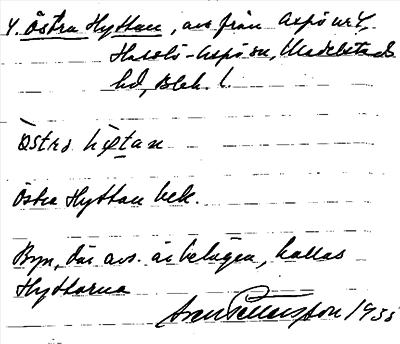 4. Östra Hyttan, avs från Aspö nr 4,
Hasslö-Aspö sn, Medelstads
hd, Blek. l.
Östra Hyttan bek.
Byn, där avs. är belägen, kallas
Hyttorna
1935